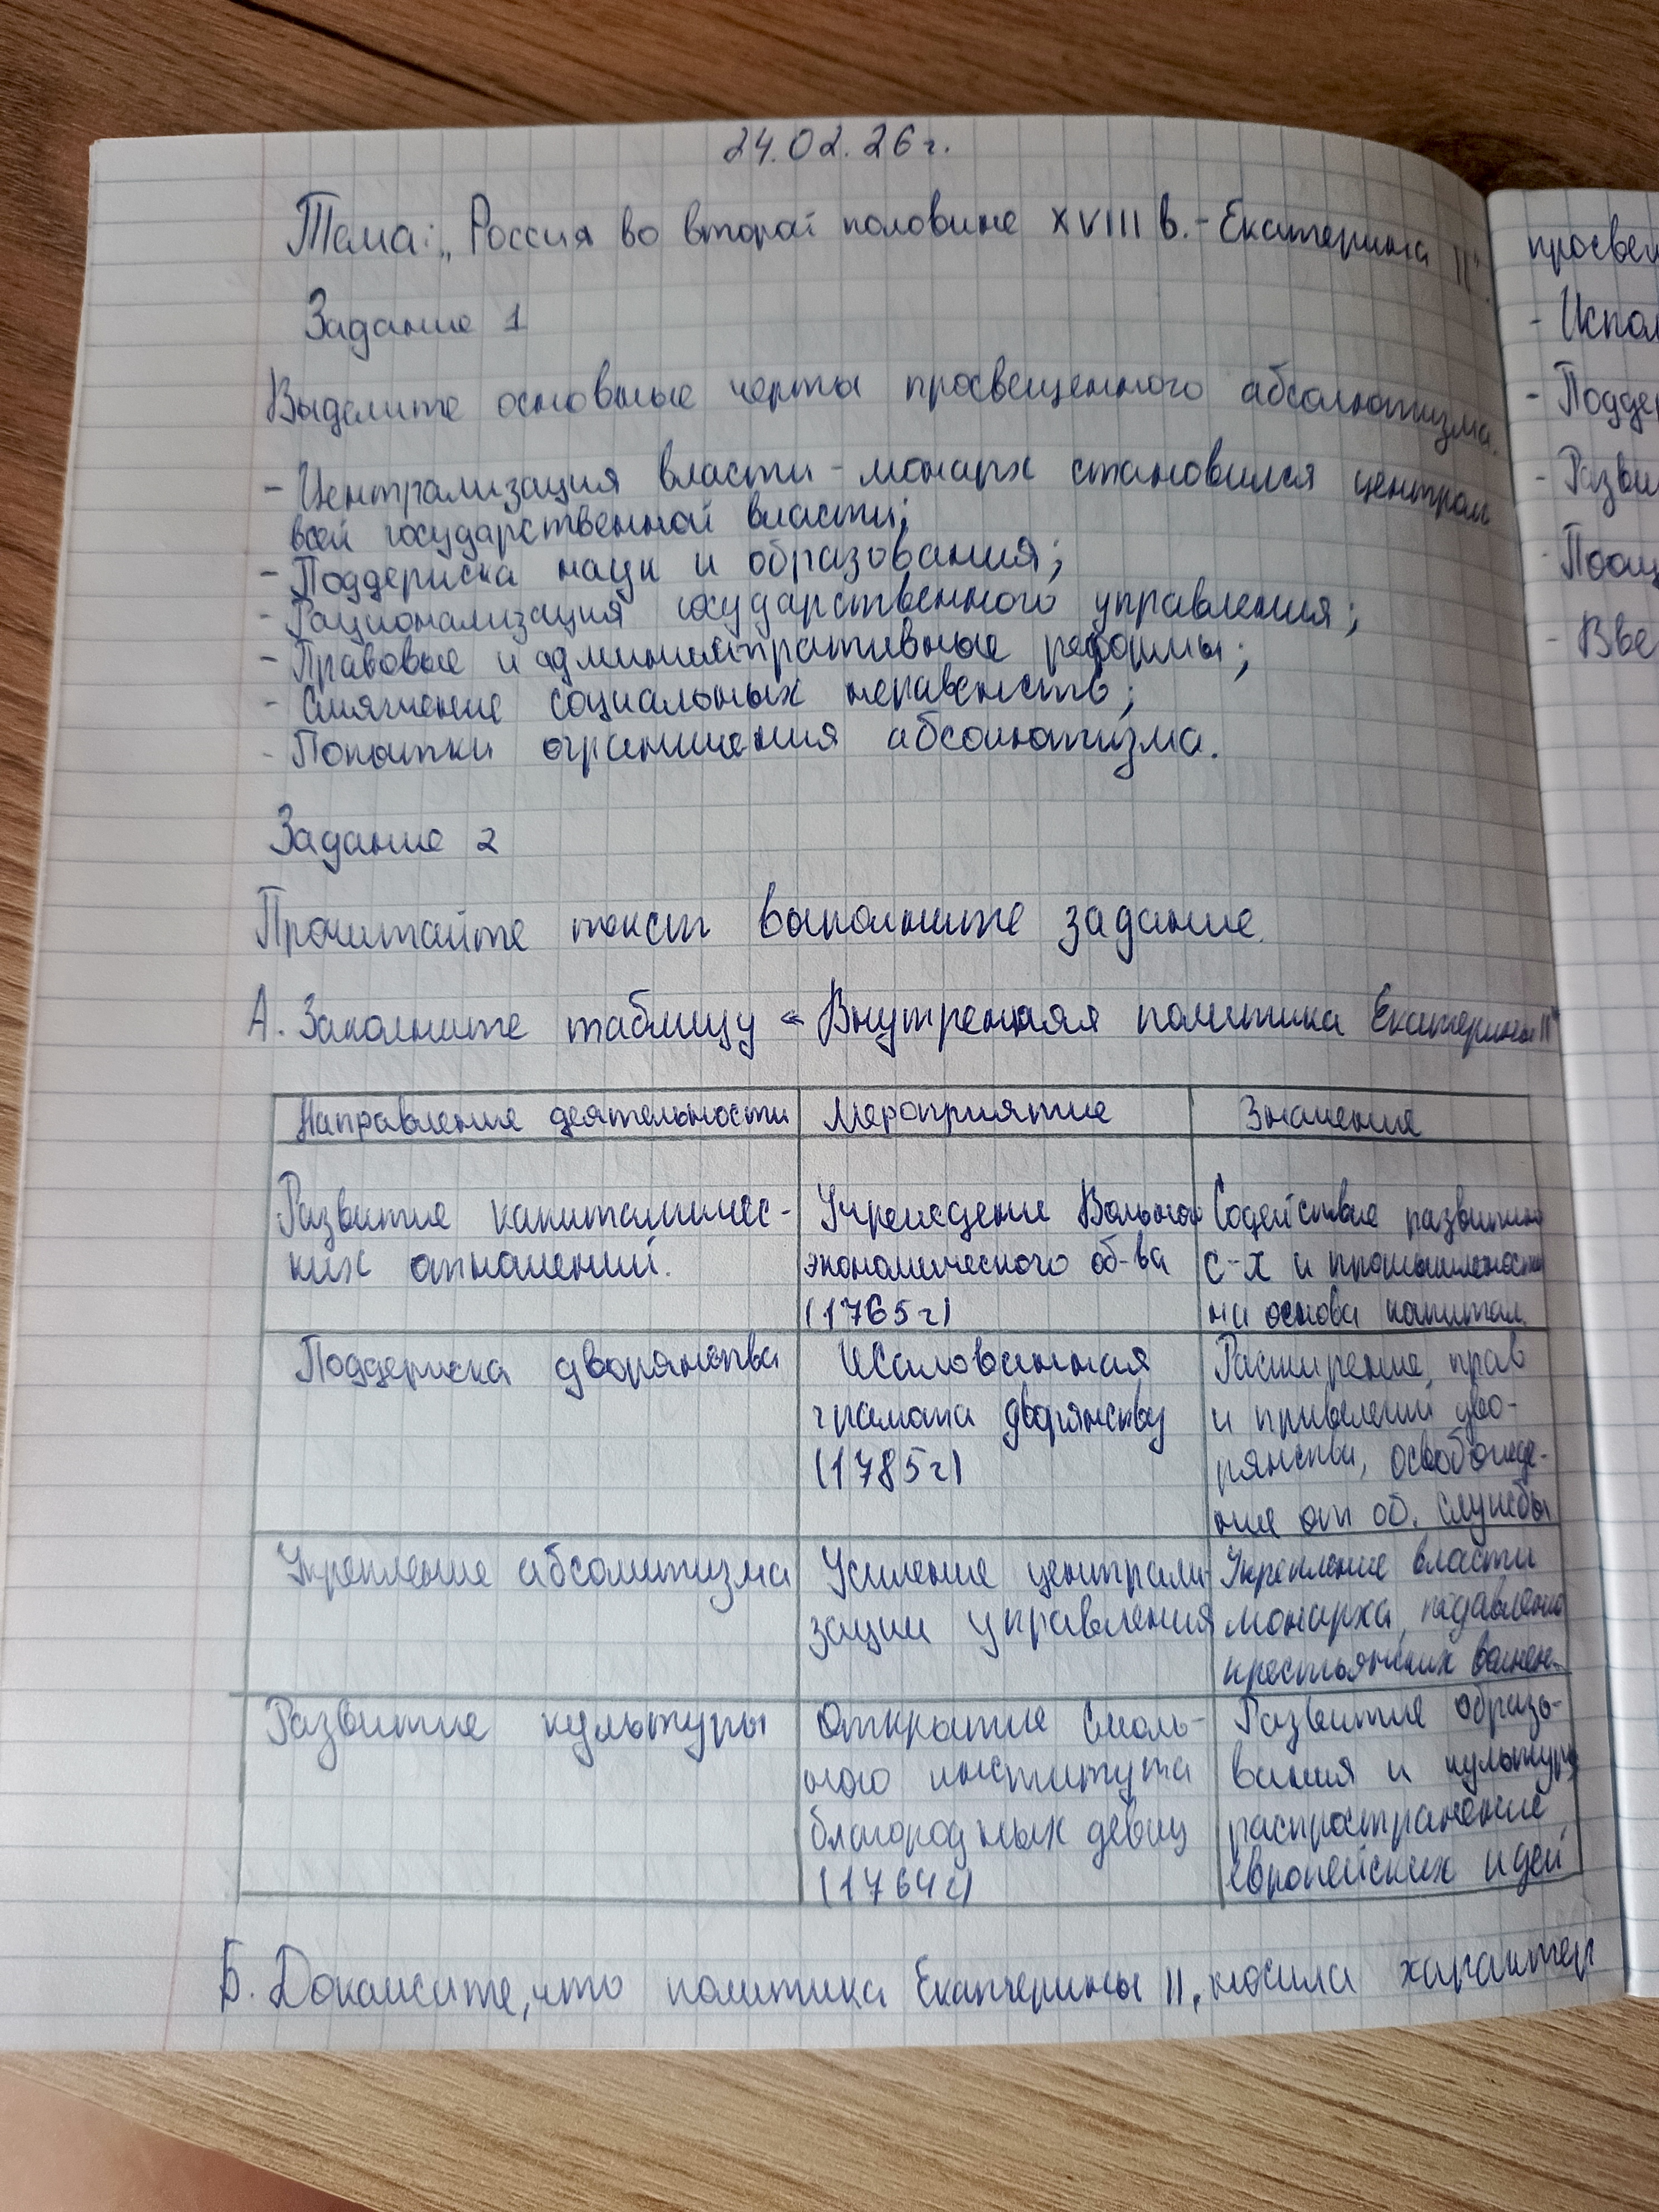 24.02.26г.
Тема: „Россия во второй половине XVIII в. - Екатерина II".
Задание 1
Выделите основные черты просвещенного абсолютизма.
- Централизация власти - монарх становился центром
всей государственной власти;
- Поддержка наук и образования;
- Рационализация государственного управления;
- Правовые и административные реформы;
- Смягчение социальных неравенств;
- Попытки ограничения абсолютизма.
Задание 2
Прочитайте текст выполните задание.
А. Заполните таблицу « Внутренняя политика Екатерины II"
Направление деятельности Мероприятие Значение
Развитие капиталичес- Учреждение Вольного Содействие развитию
ких отношений. экономического об-ва с-х и промышленности
(1765г) на основа капитал.
Поддержка дворянства Жалованная Расширение прав
грамота дворянству и привелегий дво-
(1785г) рянства, освобожде-
ние от об. службы
Укрепление абсолютизма Усиление централи- Укрепление власти
зации управления монарха, подавление
крестьянских волнен.
Развитие культуры Открытие Смоль- Развитие образо-
ного института вания и культуры
благородных девиц распространение
(1764г) европейских идей
Б. Докажите, что политика Екатерины II, носила характер
просвещ
- Испол
- Поддер
- Разви
- Поощ
- Вве